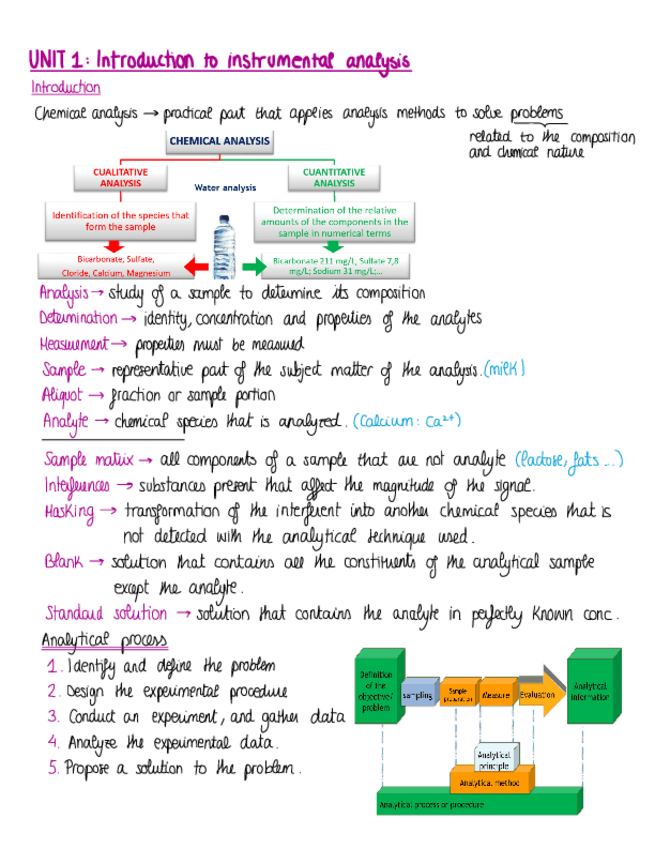 UNIT 1: Introduction to instrumental analysis
Introduction
Chemical analysis → practical part that applies analysis methods to solve problems
related to the composition
and chemical nature
CHEMICAL ANALYSIS
CUALITATIVE
ANALYSIS
CUANTITATIVE
ANALYSIS
Water analysis
Identification of the species that
form the sample
Determination of the relative
amounts of the components in the
sample in numerical terms
Bicarbonate, Sulfate,
Cloride, Calcium, Magnesium
Bicarbonate 211 mg/L; Sulfate 7,8
mg/L; Sodium 31 mg/L;...
Analysis → study of a sample to determine its composition
Determination → identity, concentration and properties of the analytes
Measurement → properties must be measured
Sample → representative part of the subject matter of the analysis. (milk)
Aliquot → fraction or sample portion
Analyte → chemical species that is analyzed. (Calcium: Ca²⁺)
Sample matrix → all components of a sample that are not analyte (lactose, fats ...)
Interferences → substances present that affect the magnitude of the signal.
Masking → transformation of the interferent into another chemical species that is
not detected with the analytical technique used.
Blank → solution that contains all the constituents of the analytical sample
except the analyte.
Standard solution → solution that contains the analyte in perfectly known conc.
Analytical process
1. Identify and define the problem
2. Design the experimental procedure
3. Conduct an experiment, and gather data
4. Analyze the experimental data.
5. Propose a solution to the problem.
Definition
of the
objective/
problem
sampling
Sample
preparation
Measure
Evaluation
Analytical
information
Analytical
principle
Analytical method
Analytical process or procedure